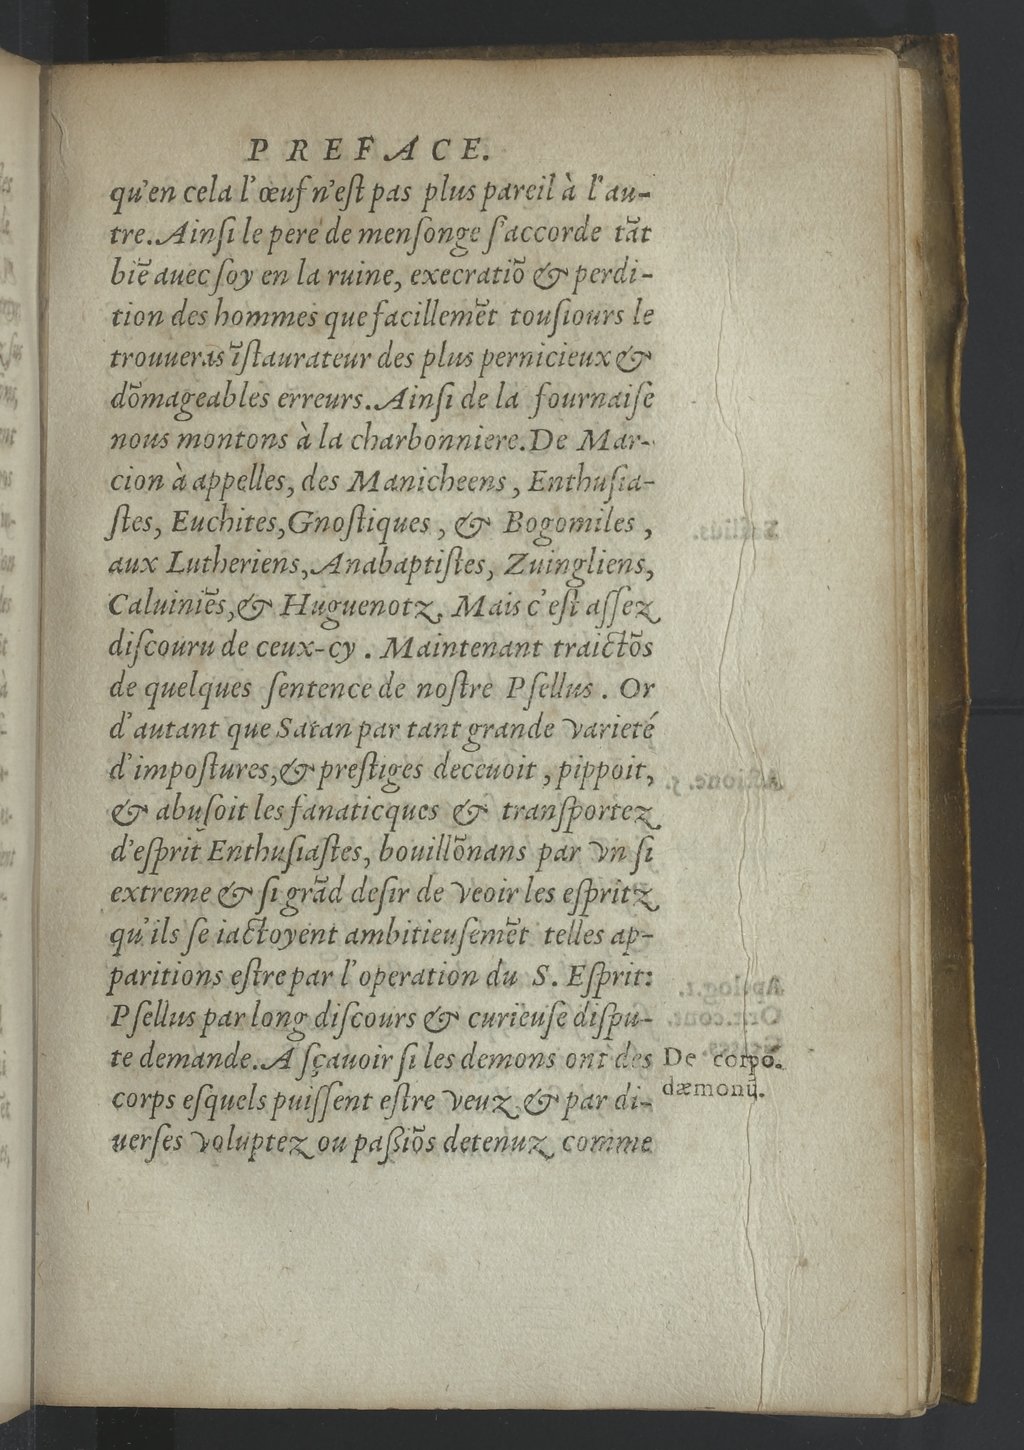 PREFACE.
qu'en cela l'œuf n'eſt pas plus pareil à l'au-
tre. Ainſi le pere de menſonge ſ'accorde tāt
biē auec ſoy en la ruine, execratiō & perdi-
tion des hommes que facillemēt touſiours le
trouueras īſtaurateur des plus pernicieux &
dōmageables erreurs. Ainſi de la fournaiſe
nous montons à la charbonniere. De Mar-
cion à appelles, des Manicheens, Enthuſia-
ſtes, Euchites, Gnoſtiques, & Bogomiles,
aux Lutheriens, Anabaptiſtes, Zuingliens,
Caluiniēs, & Huguenotz. Mais c'eſt aſſez
diſcouru de ceux-cy. Maintenant traictōs
de quelques ſentence de noſtre Pſellus. Or
d'autant que Satan par tant grande varieté
d'impoſtures, & preſtiges deceuoit, pippoit,
& abuſoit les fanaticques & tranſportez
d'eſprit Enthuſiaſtes, bouillōnans par vn ſi
extreme & ſi grād deſir de veoir les eſpritz
qu'ils ſe iactoyent ambitieuſemēt telles ap-
paritions eſtre par l'operation du S. Eſprit:
Pſellus par long diſcours & curieuſe diſpu-
te demande. A ſçauoir ſi les demons ont des
corps eſquels puiſſent eſtre veuz, & par di-
uerſes voluptez ou paſsiōs detenuz comme
De corpo.
dæmonū.